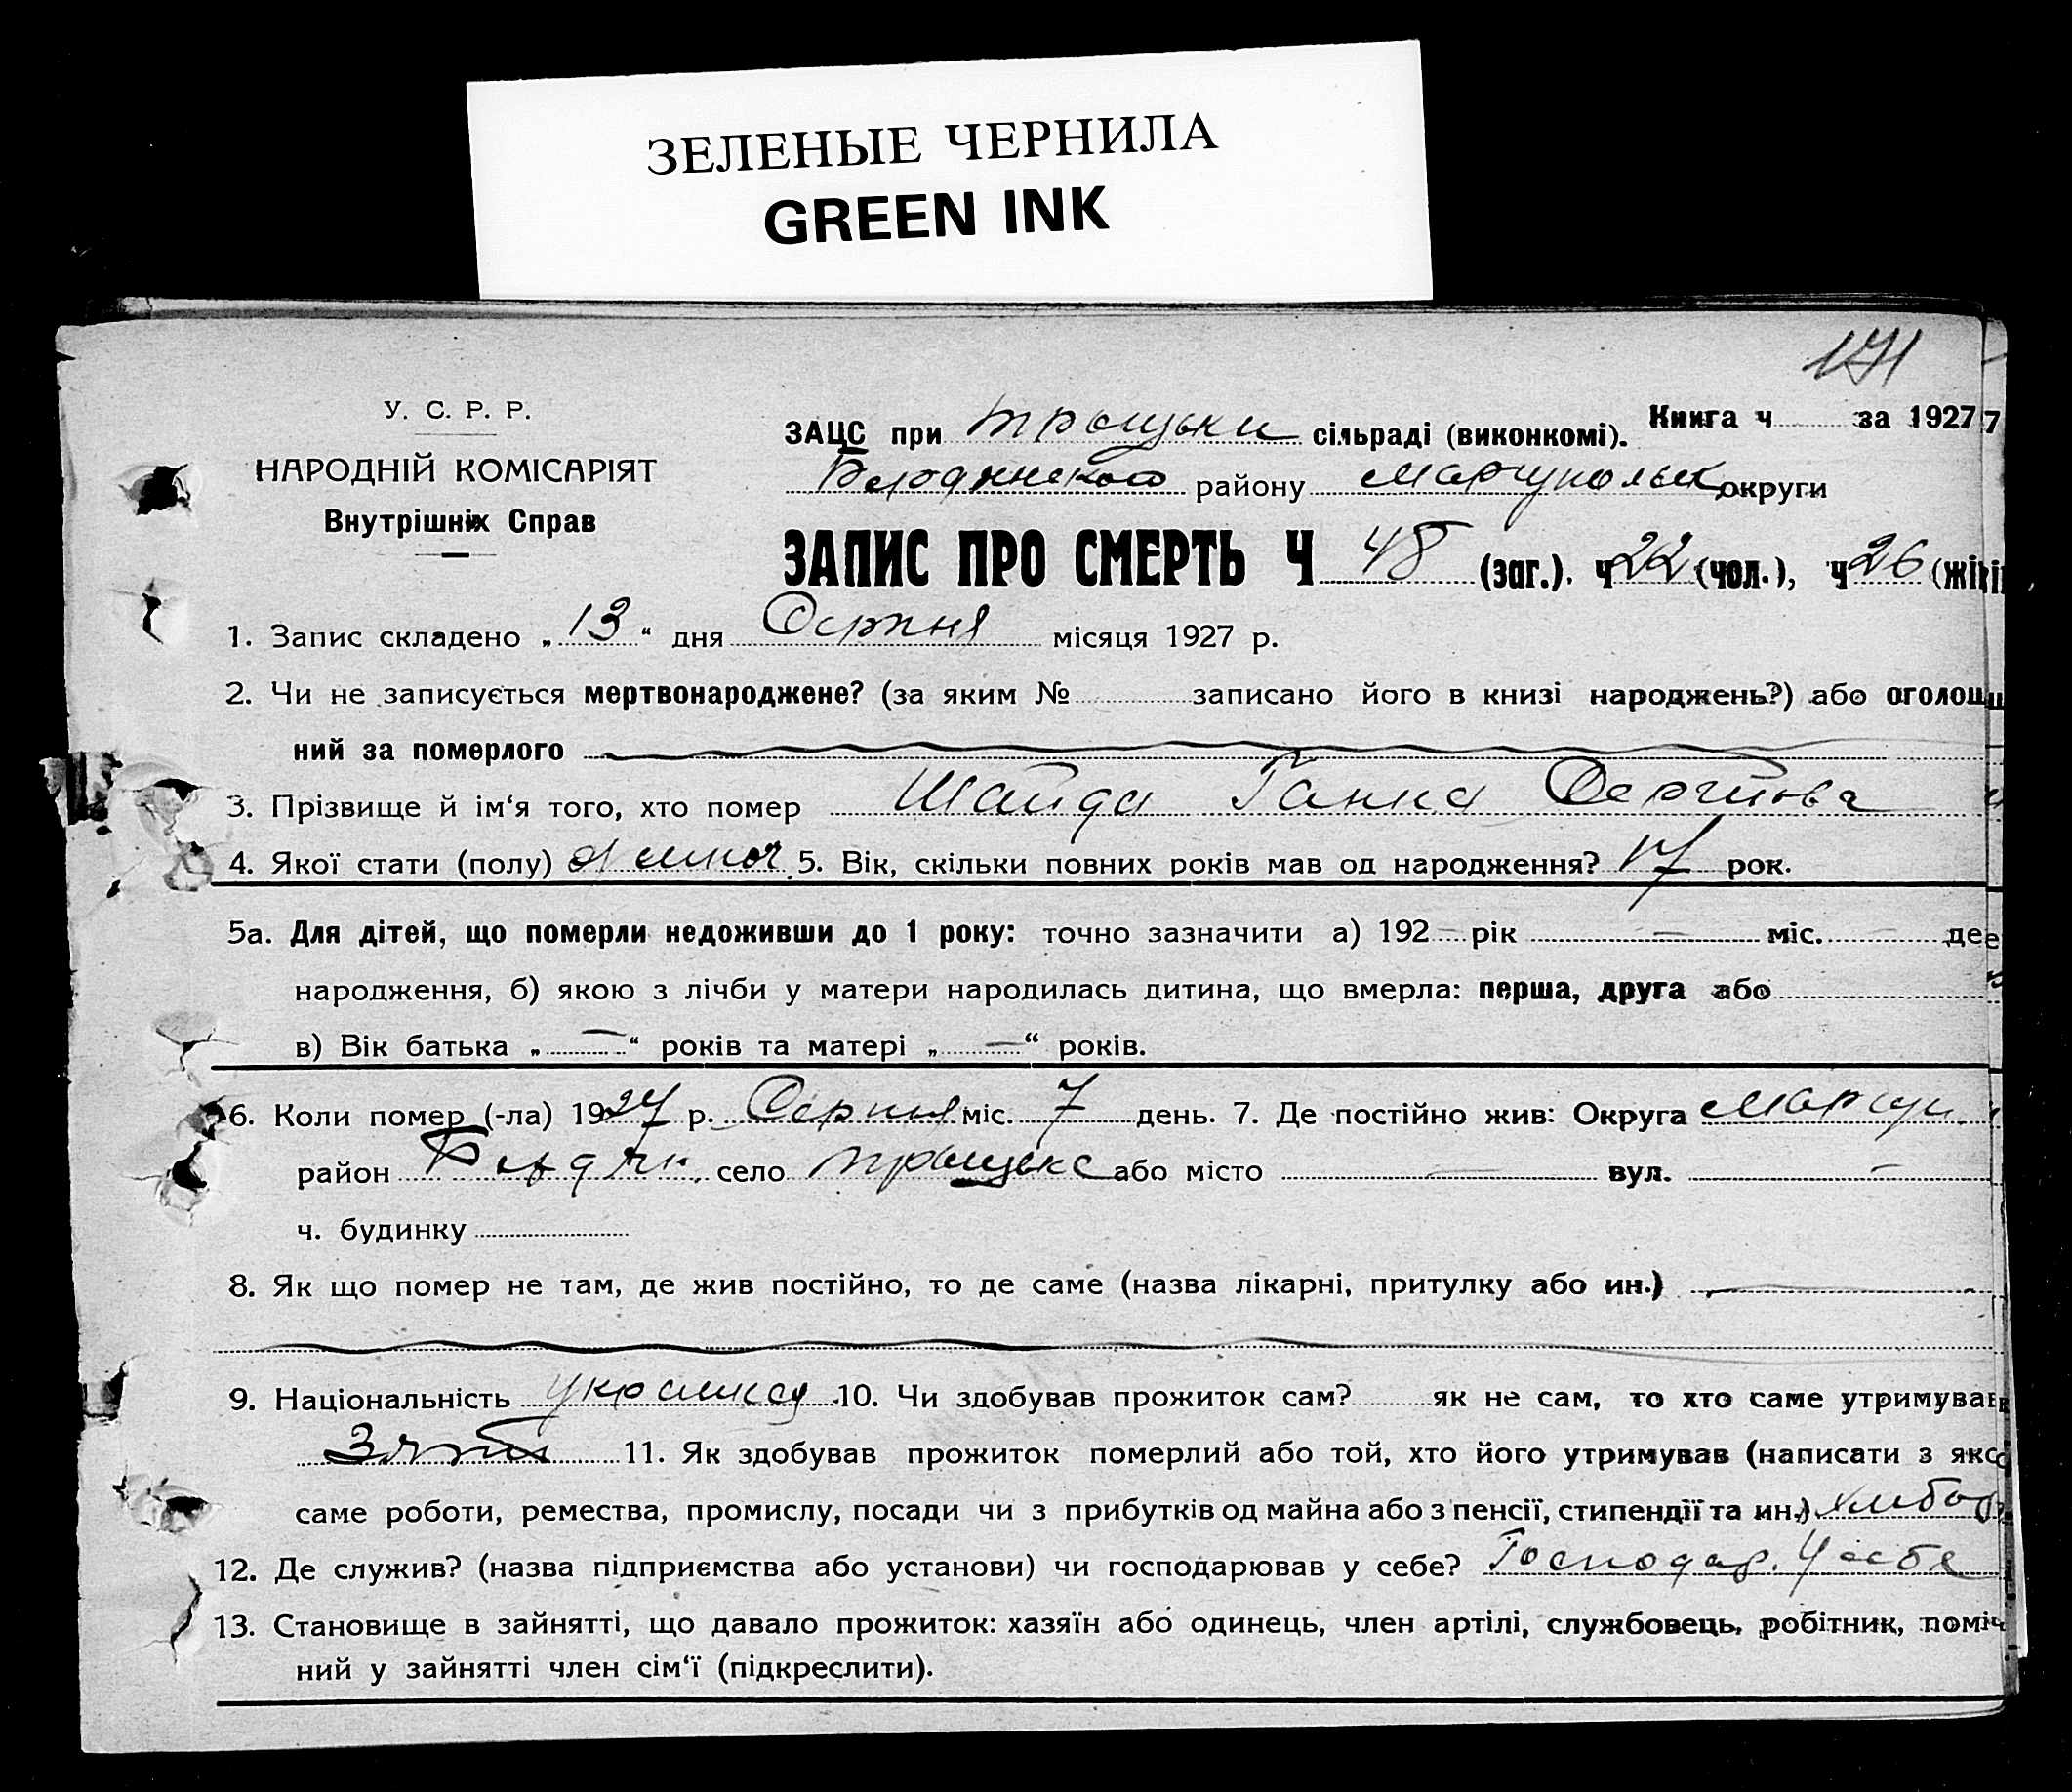 ЗЕЛЕНЫЕ ЧЕРНИЛА
GREEN INK
171
У. С. Р. Р.
НАРОДНІЙ КОМІСАРІЯТ
Внутрішніх Справ
ЗАЦС при Троцьки сільраді (виконкомі). Книга ч за 1927
району Маріупольск округи
ЗАПИС ПРО СМЕРТЬ Ч 48 (заг.). ч 22 (чол.), ч 26 (жі
1. Запис складено „13“ дня Серпня місяця 1927 р.
2. Чи не записується мертвонароджене? (за яким № записано його в книзі народжень?) або оголош
ний за померлого
3. Прізвище й ім‘я того, хто помер Шайда Ганна
4. Якої стати (полу) жиноч 5. Вік, скільки повних років мав од народження? 17 рок.
5а. Для дітей, що померли недоживши до 1 року: точно зазначити а) 192— рік — міс. — де
народження, б) якою з лічби у матери народилась дитина, що вмерла: перша, друга або
в) Вік батька „—“ років та матері „—“ років.
6. Коли помер (-ла) 1927 р. Серпня міс. 7 день. 7. Де постійно жив: Округа Маріуп.
район село Троцьке або місто — вул. —
ч. будинку
8. Як що помер не там, де жив постійно, то де саме (назва лікарні, притулку або ин.) —
9. Національність 10. Чи здобував прожиток сам? як не сам, то хто саме утримував
Зять 11. Як здобував прожиток померлий або той, хто його утримував (написати з яко
саме роботи, ремества, промислу, посади чи з прибутків од майна або з пенсії, стипендії та ин.) хлібор
12. Де служив? (назва підприємства або установи) чи господарював у себе? Господар. У себе
13. Становище в зайнятті, що давало прожиток: хазяїн або одинець, член артілі, службовець, робітник, поміч
ний у зайнятті член сім‘ї (підкреслити).